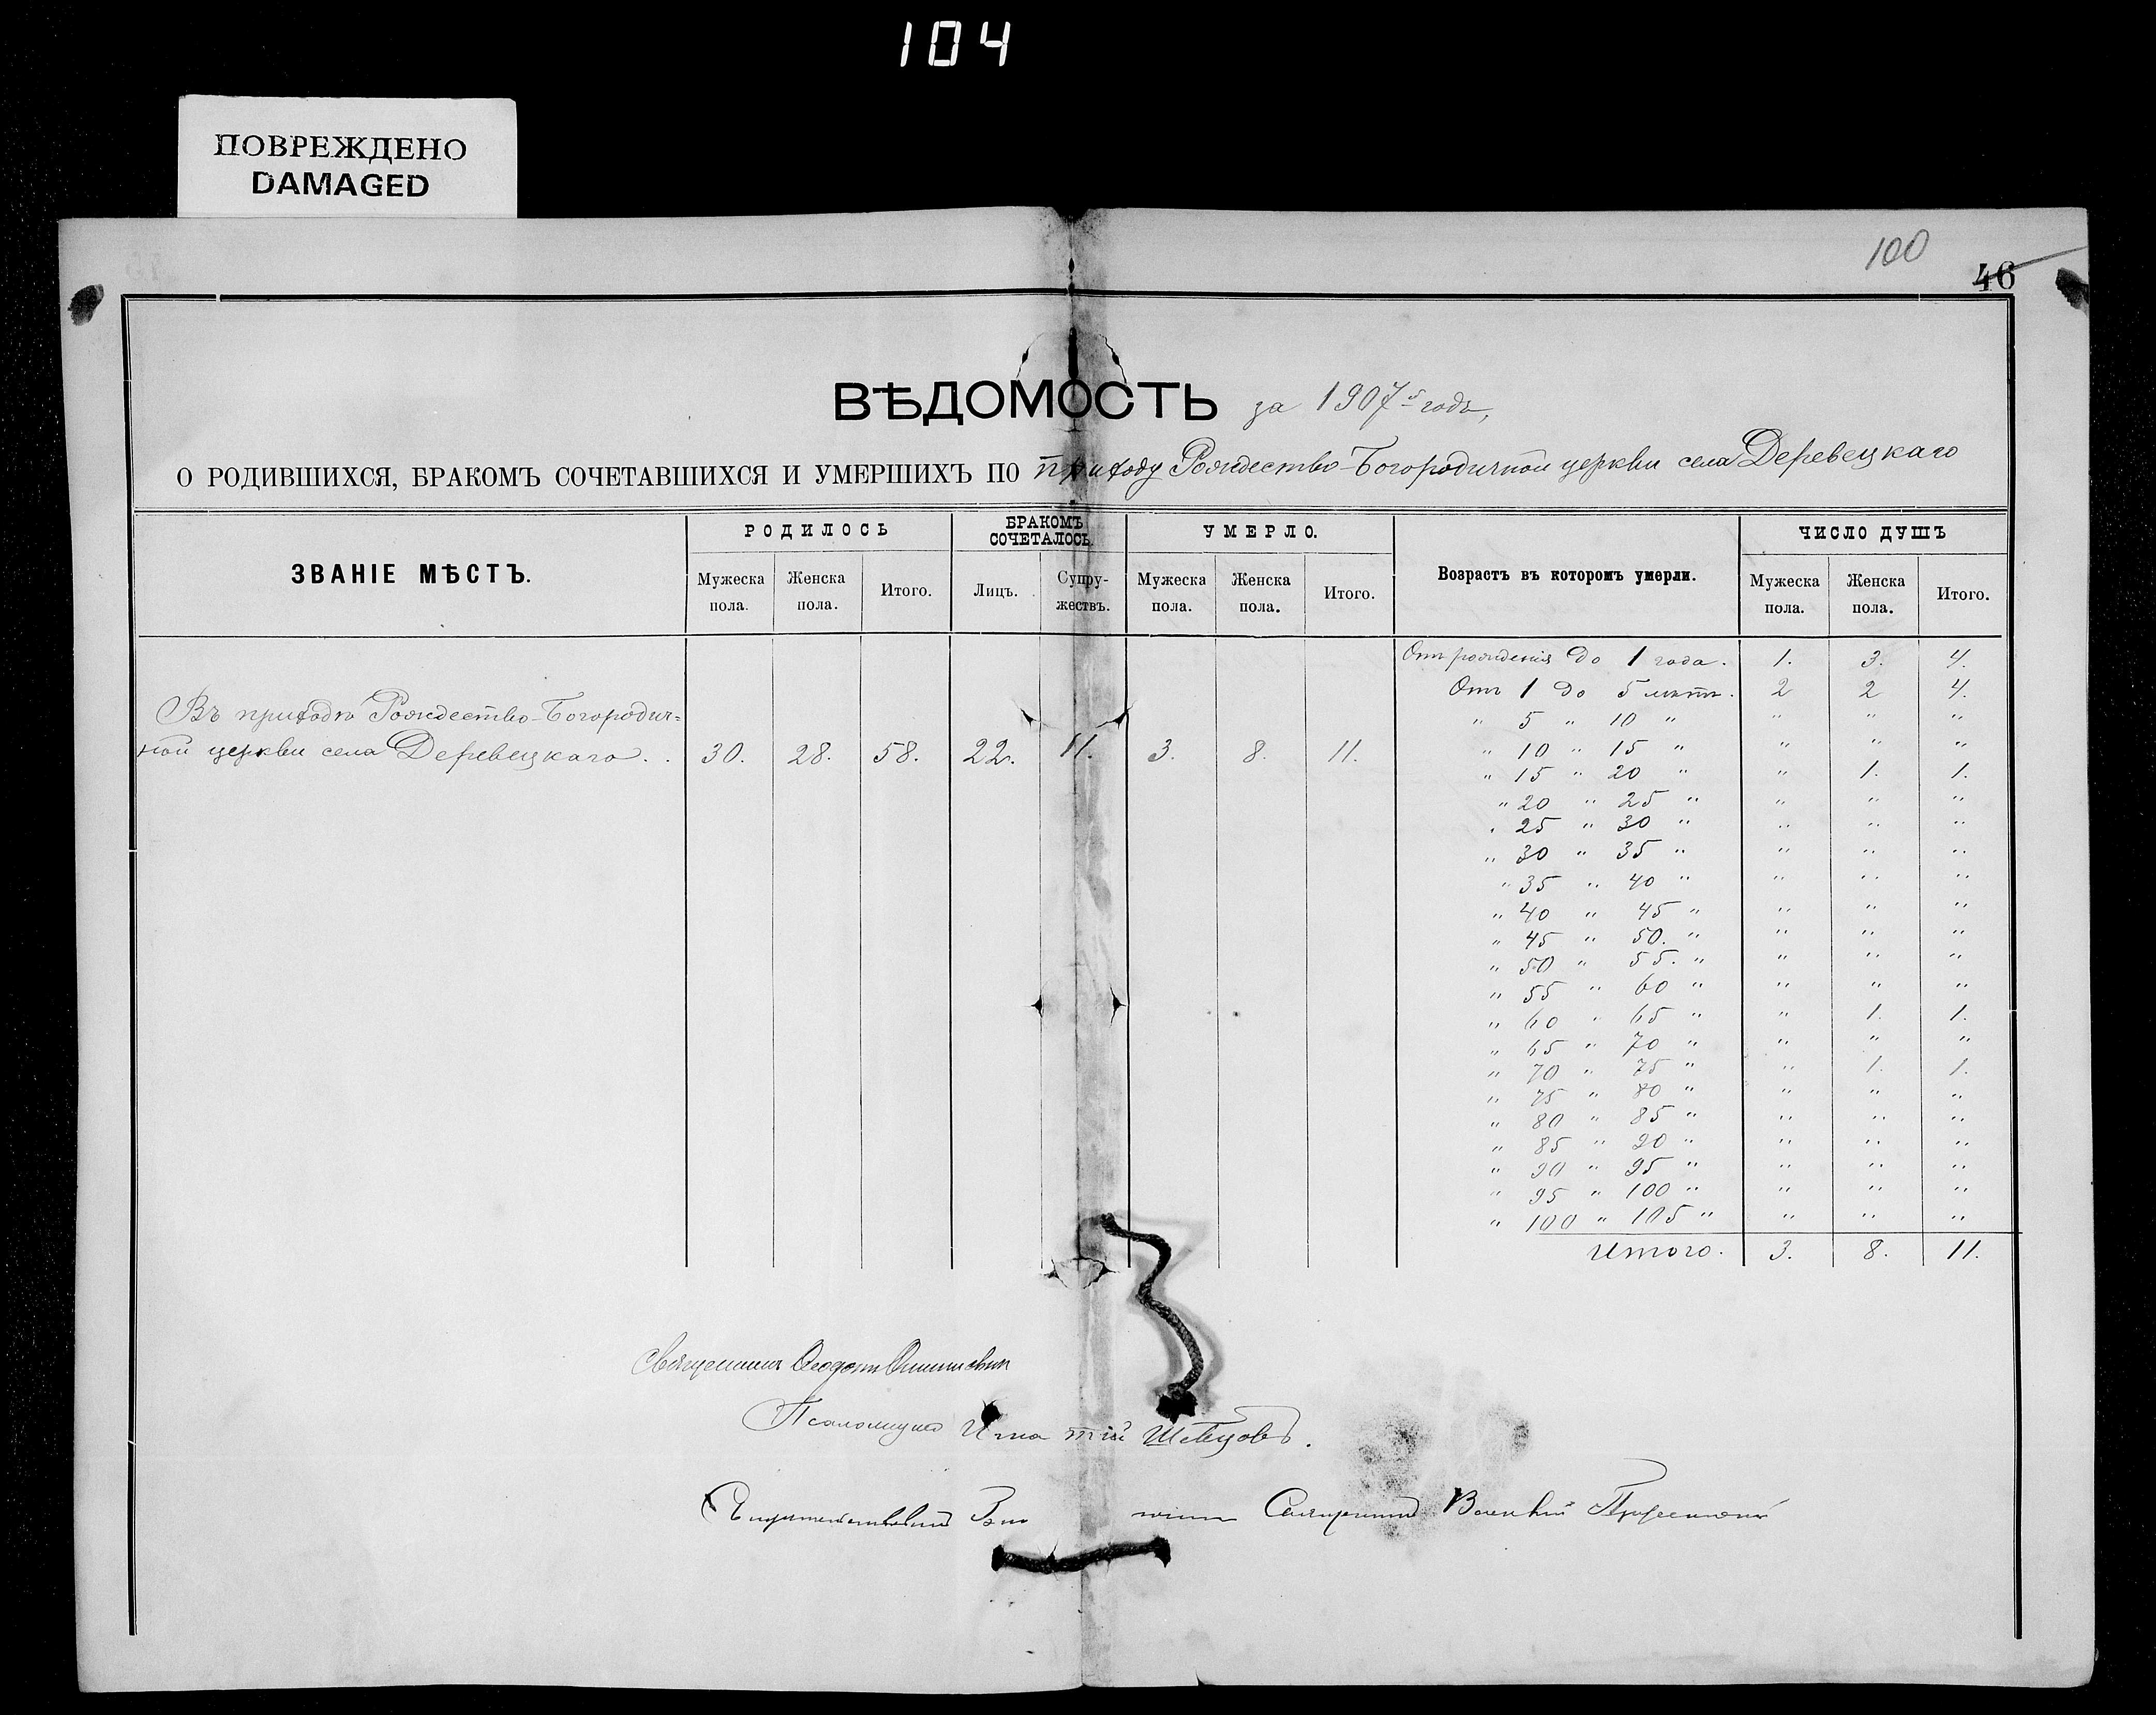 104
ПОВРЕЖДЕНО
DAMAGED
100
46
ВѢДОМОСТЬ за 1907й годъ,
О РОДИВШИХСЯ, БРАКОМЪ СОЧЕТАВШИХСЯ И УМЕРШИХЪ ПО приходу Рождество-Богородичной церкви села Деревецкаго
ЗВАНІЕ МѢСТЪ. РОДИЛОСЬ БРАКОМЪ СОЧЕТАЛОСЬ. УМЕРЛО. Возрастъ въ которомъ умерли. ЧИСЛО ДУШЪ
Мужеска пола. Женска пола. Итого. Лицъ. Супру-жествъ. Мужеска пола. Женска пола. Итого. Мужеска пола. Женска пола. Итого.
Въ приходѣ Рождество-Богородич=
ной церкви села Деревецкаго . . 30. 28. 58. 22. 11. 3. 8. 11.
Отъ рожденія до 1 года. 1. 3. 4.
Отъ 1 до 5 лѣтъ. 2 2 4.
" 5 " 10 " " " "
" 10 " 15 " " " "
" 15 " 20 " " 1. 1.
" 20 " 25 " " " "
" 25 " 30 " " " "
" 30 " 35 " " " "
" 35 " 40 " " " "
" 40 " 45 " " " "
" 45 " 50. " " " "
" 50 " 55. " " " "
" 55 " 60 " " " "
" 60 " 65 " " 1. 1.
" 65 " 70 " " " "
" 70 " 75 " " 1. 1.
" 75 " 80 " " " "
" 80 " 85 " " " "
" 85 " 90 " " " "
" 90 " 95 " " " "
" 95 " 100 " " " "
" 100 " 105 " " " "
Итого. 3. 8. 11.
Священникъ
Псаломщикъ Игнатій Шевцовъ.
Священникъ